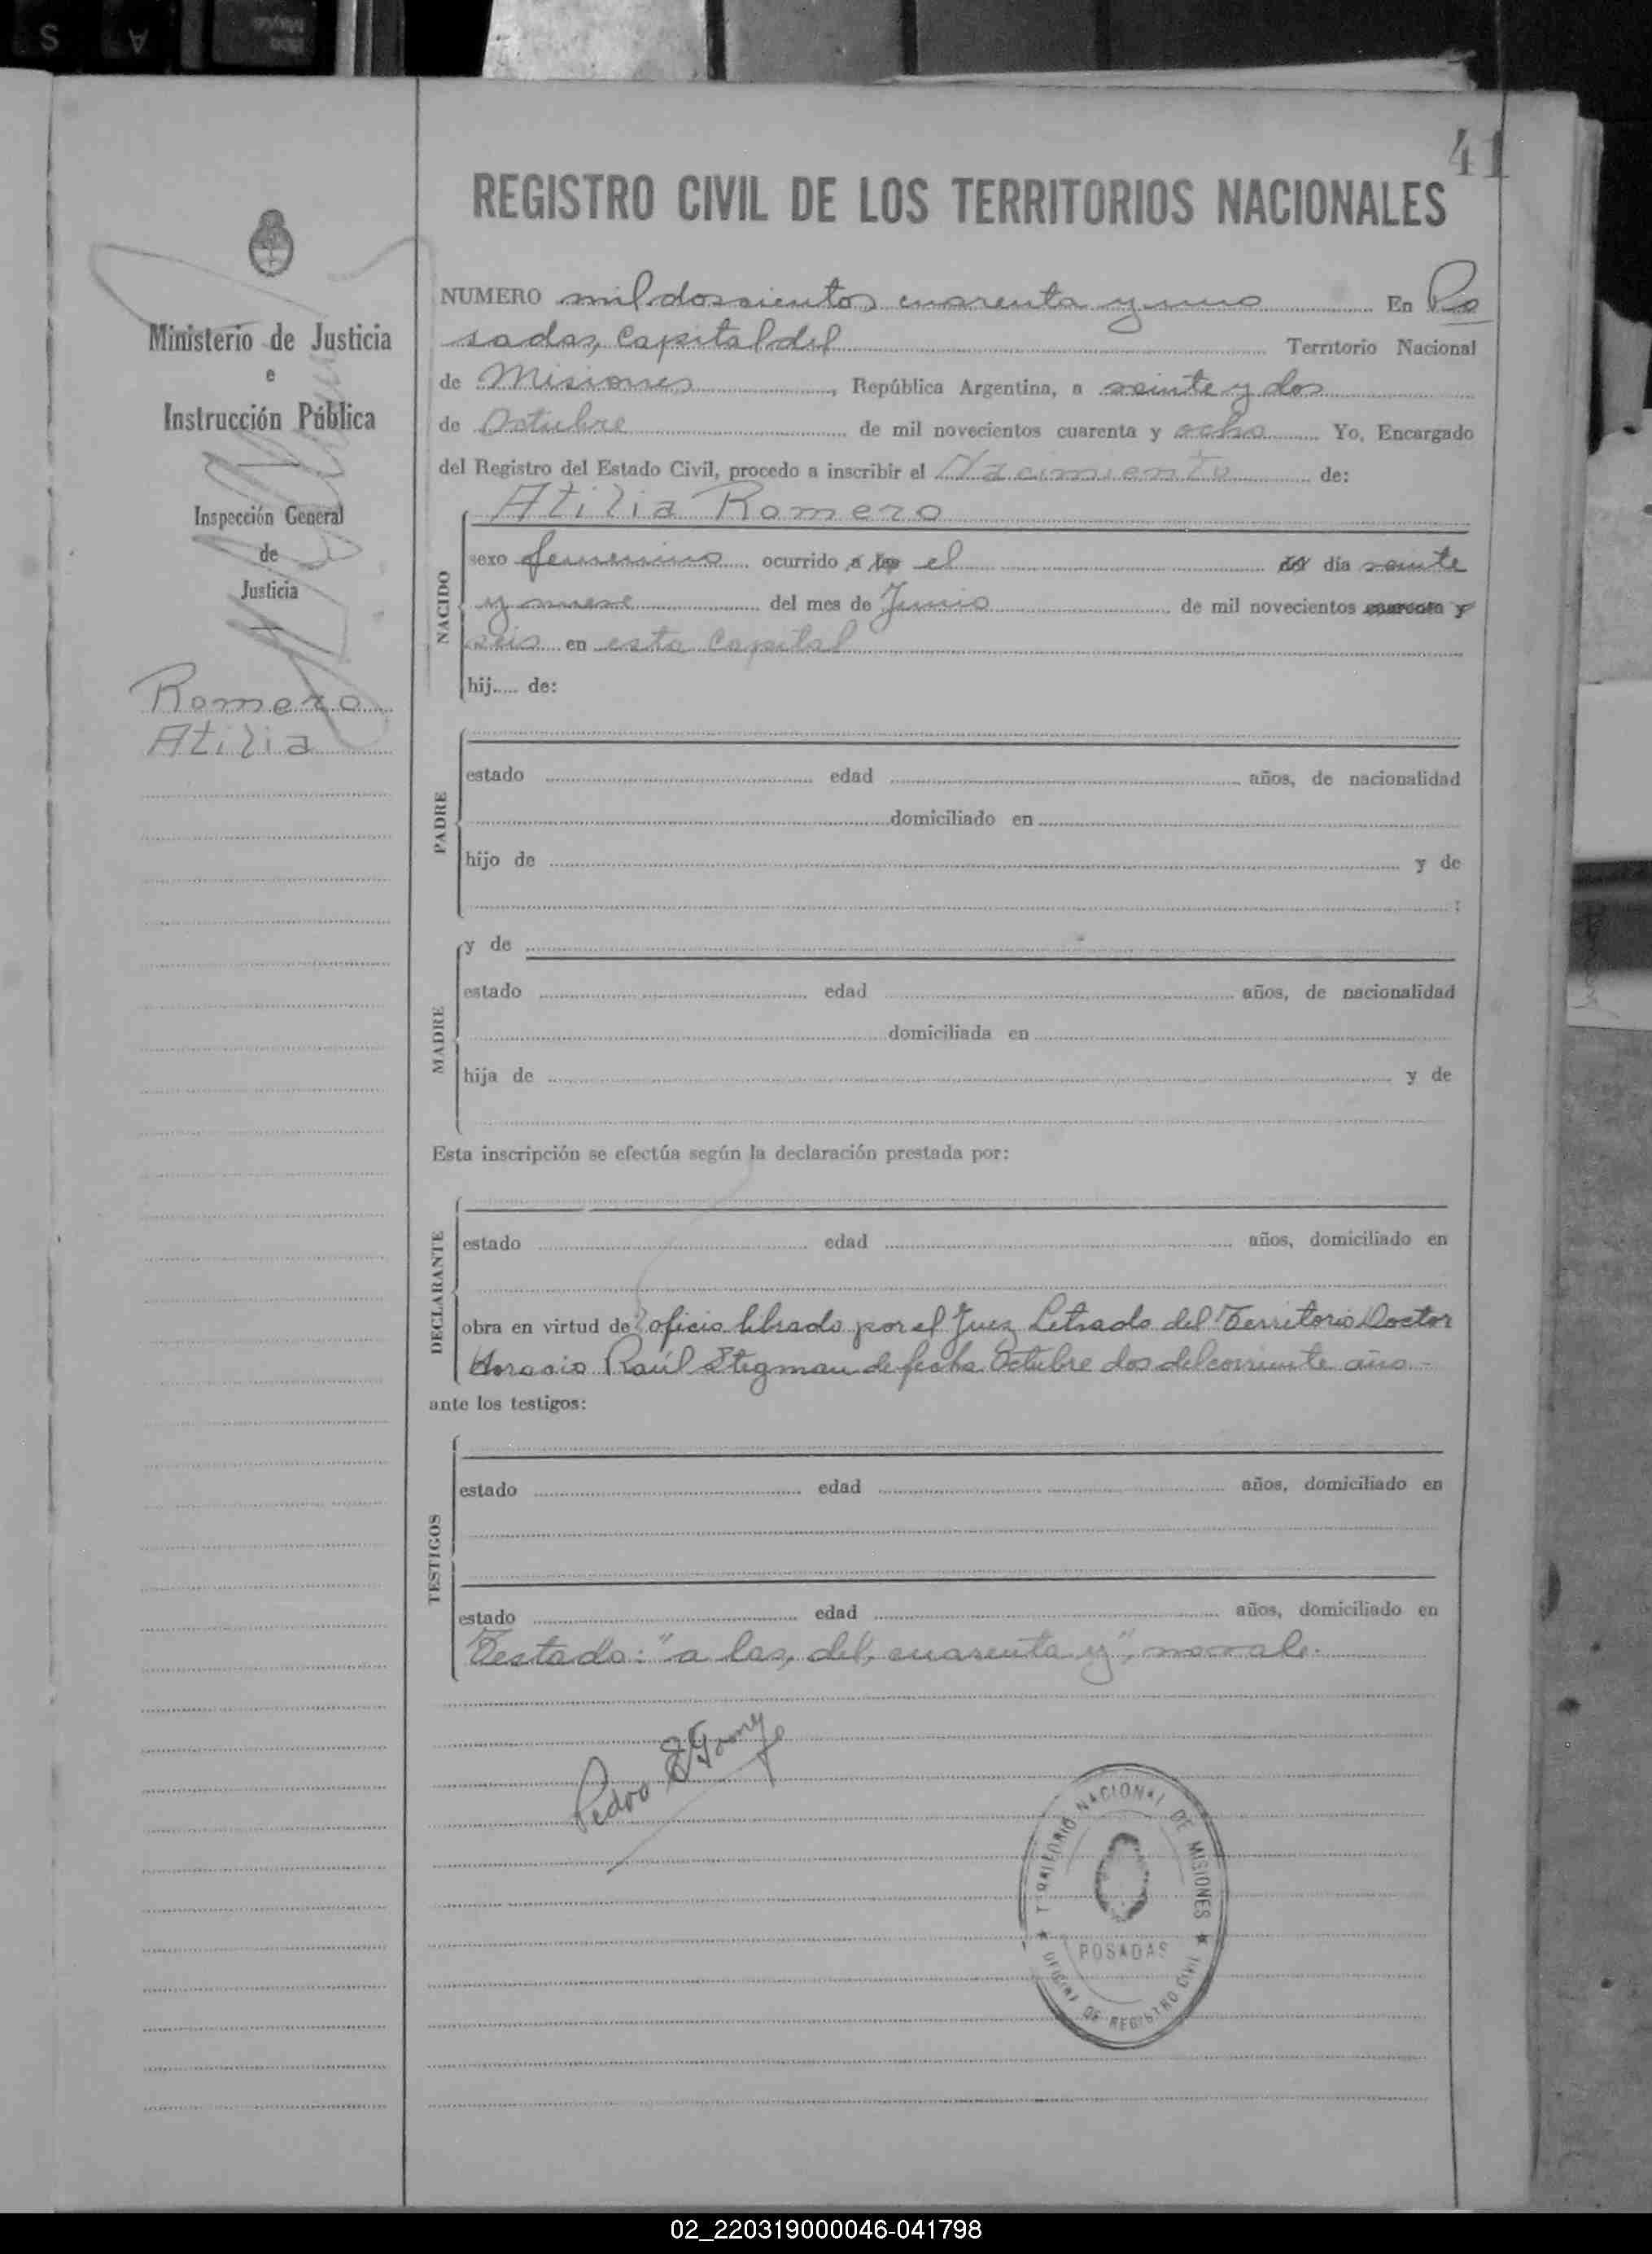 41
REGISTRO CIVIL DE LOS TERRITORIOS NACIONALES
Ministerio de Justicia
e
Instrucción Pública
Inspección General
de
Justicia
Romero
Atilia
NUMERO mil doscientos cuarenta y uno En Po
sadas, Capital del Territorio Nacional
de Misiones, República Argentina, a veinte y dos
de Octubre de mil novecientos cuarenta y ocho Yo, Encargado
del Registro del Estado Civil, procedo a inscribir el Nacimiento de:
Atilia Romero
NACIDO
sexo femenino ocurrido a las el del día veinte
y nueve del mes de Junio de mil novecientos cuarenta y
seis en esta Capital
hij..... de:
PADRE
estado edad años, de nacionalidad
domiciliado en
hijo de y de
;
MADRE
y de
estado edad años, de nacionalidad
domiciliada en
hija de y de
Esta inscripción se efectúa según la declaración prestada por:
DECLARANTE
estado edad años, domiciliado en
obra en virtud de oficio librado por el Juez Letrado del Territorio Doctor
Horacio Raúl Stegman de fecha Octubre dos del corriente año.-
ante los testigos:
TESTIGOS
estado edad años, domiciliado en
estado edad años, domiciliado en
Testado: "a las, del, cuarenta y", no vale.
Pedro
TERRITORIO NACIONAL DE MISIONES
POSADAS
OFICINA DE REGISTRO CIVIL
02_220319000046-041798